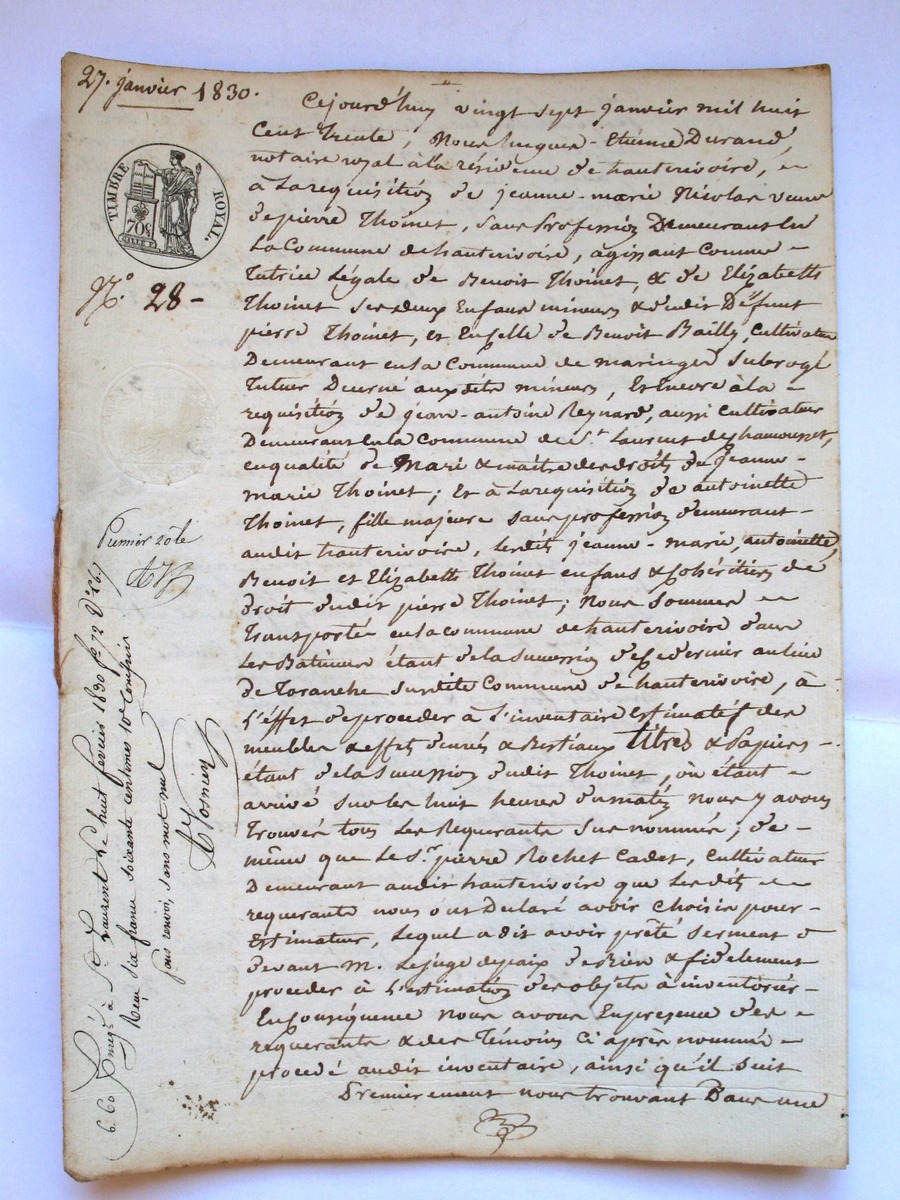 27. janvier 1830.
TIMBRE ROYAL.
70c
N.º 28-
Cejourd'huy vingt sept janvier mil huit
Cent trente, Nous hugues-Etienne Durand,
notaire royal à la résidence de hauterivoire,
à la requisition de jeanne-marie Nicolas veuve
de pierre Thoinet, sans profession Demeurant en
La Commune de hauterivoire, agissant Comme
Tutrice Légale de Benoit Thoinet, & de Elizabeth
Thoinet ses deux Enfans mineurs & dudit Défunt
pierre Thoinet, et En celle de Benoit Bailly, Cultivateur
Demeurant en la Commune de maringes subrogé
Tuteur Decerné auxdits mineurs, Et Encore à la
requisition de jean-antoine Reynard, aussi Cultivateur
Demeurant En la Commune de St Laurent de Chamousset,
en qualité de Mari & maître des droits de jeanne-
marie Thoinet; Et à la requisition de antoinette
Thoinet, fille majeure sans profession demeurant
audit hauterivoire, lesdits jeanne-marie, antoinette,
Benoit et Elizabeth Thoinet enfans & Cohéritiers de
droit dudit pierre Thoinet; Nous sommes
Transportés en la commune de hauterivoire dans
Les Batimens étant de la succession de ce dernier au lieu
de Toranche susdite Commune de hauterivoire, à
L'effet de proceder à L'inventaire Estimatif des
meubles & effets denrés & Bestiaux titres & Papiers
étant de la succession dudit Thoinet, où étant
arrivé sur les huit heures du matin nous y avons
Trouvés tous Les Requerants sus nommés; de
même que Le Sr. pierre Rochet Cadet, Cultivateur
Demeurant audit hauterivoire que Lesdits
requerants nous ont Declaré avoir Choisi pour
Estimateur, Lequel a dit avoir prêté serment
devant M. Le juge de paix de Bien & fidelement
proceder à L'estimation des objets à inventorier
En Conséquence nous avons En presence des
requerants & des Témoins Ci après nommés
procedé audit inventaire, ainsi qu'il suit
Premierement nous trouvant Dans une
Premier rôle
Enregé. à St. Laurent Le huit fevrier 1830 fo. 72
Reçu six francs soixante centimes 10e compris
sans renvoi, sans mot nul
6.60